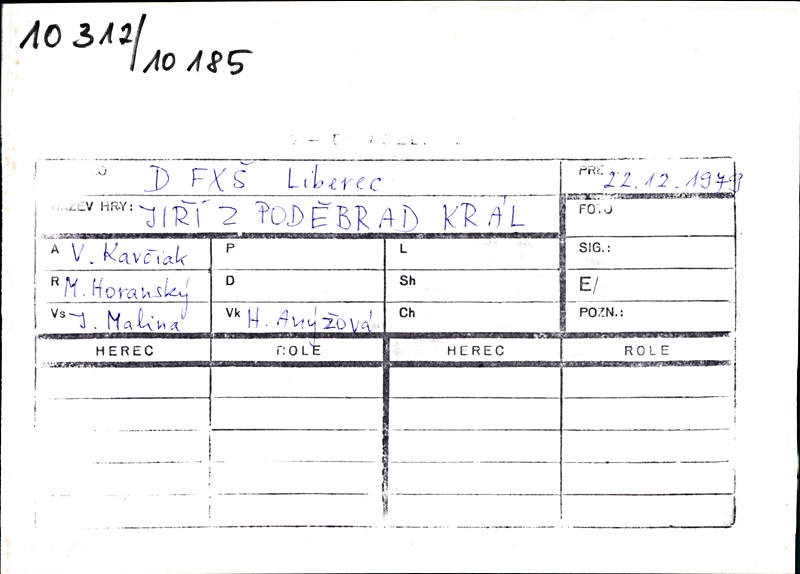 10 312/
10 185
D FXŠ Liberec PRE 22.12.1979
NÁZEV HRY: JIŘÍ Z PODĚBRAD KRÁL FOTO
A V. Kavčiak P L SIG.:
R M. Horanský D Sh E/
Vs J. Malina Vk H. Anýžová Ch POZN.:
HEREC ROLE HEREC ROLE